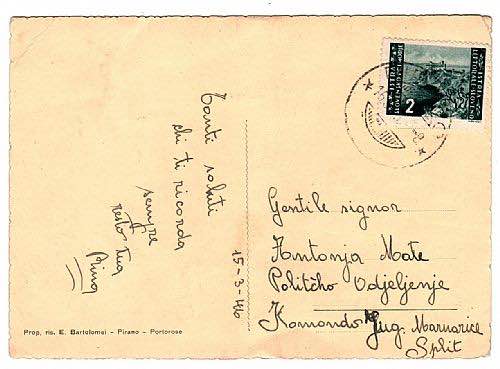 Tanti saluti
chi ti ricorda
sempre
resto tua
Pina
15-3-46
Gentile signor
Antonja Mate
Politčko Odjeljenje
Komando Jug. Marnarice
Split
Prop. ris. E. Bartolomei - Pirano - Portorose
2